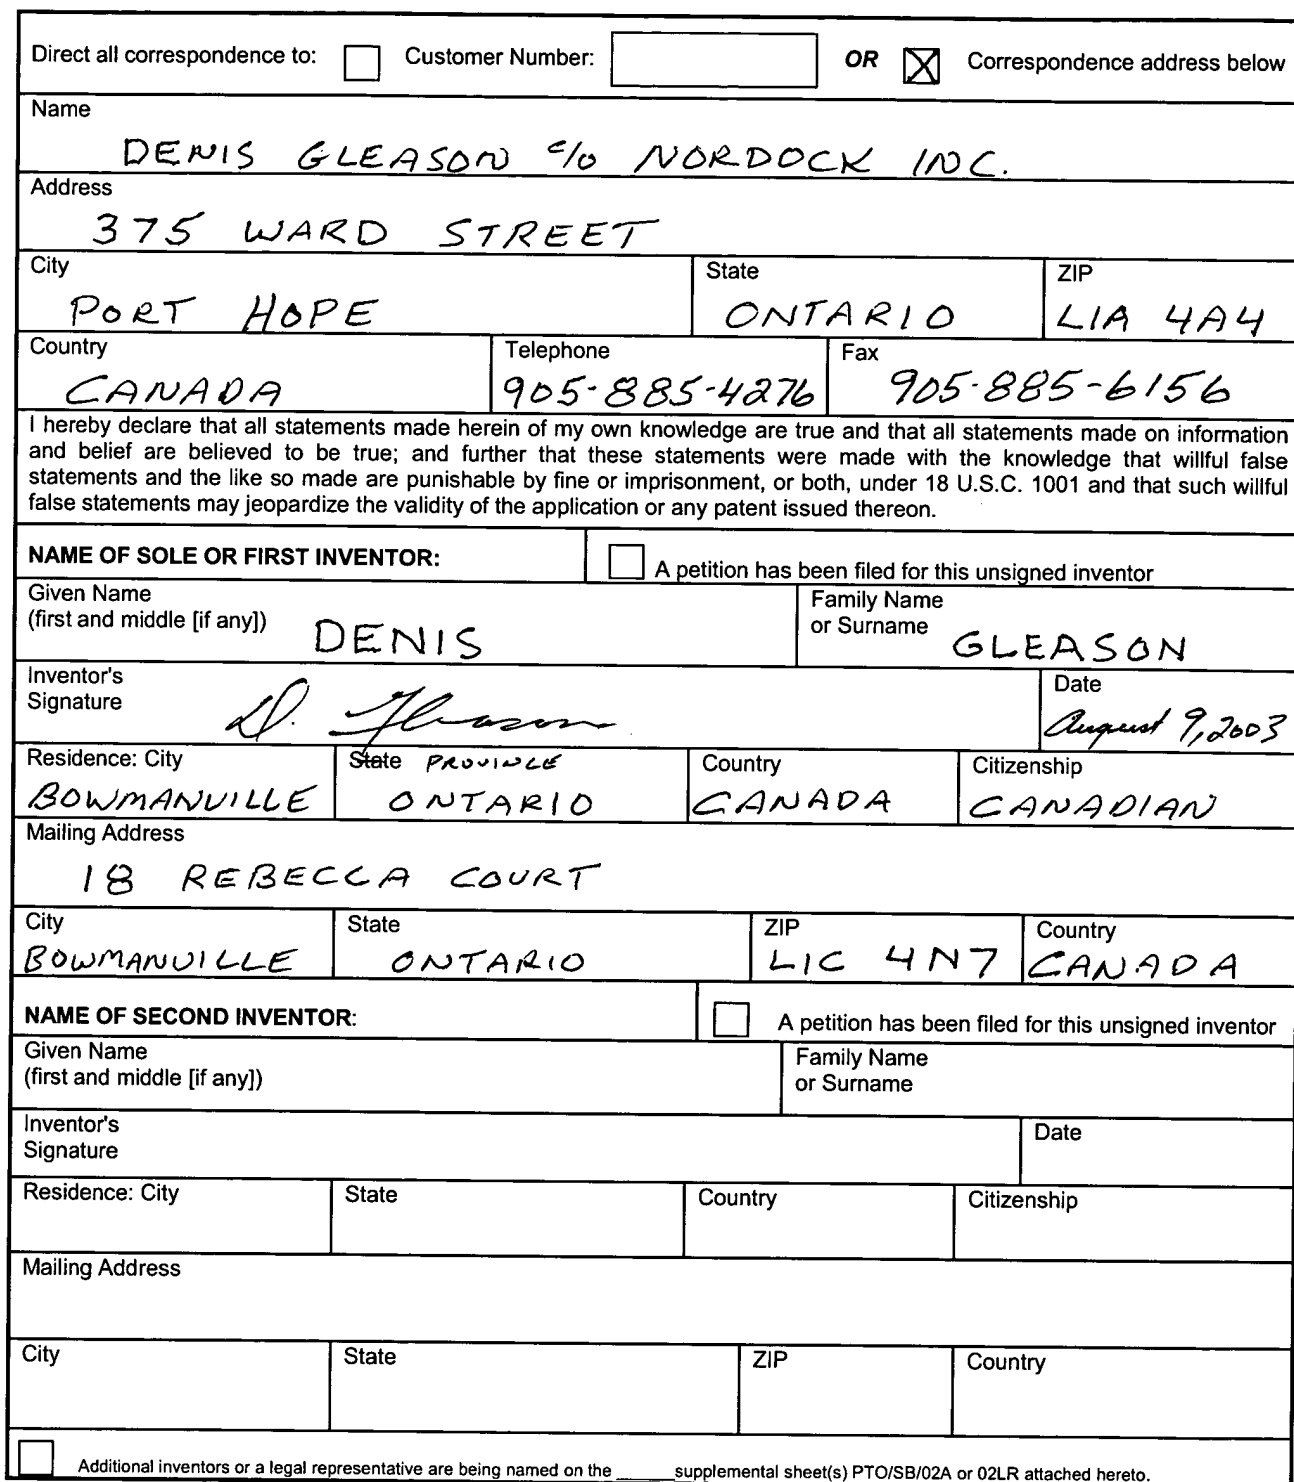 Direct all correspondence to: Customer Number: OR Correspondence address below
Name
DENIS GLEASON c/o NORDOCK INC.
Address
375 WARD STREET
City State ZIP
PORT HOPE ONTARIO L1A 4A4
Country Telephone Fax
CANADA 905-885-4276 905-885-6156
I hereby declare that all statements made herein of my own knowledge are true and that all statements made on information
and belief are believed to be true; and further that these statements were made with the knowledge that willful false
statements and the like so made are punishable by fine or imprisonment, or both, under 18 U.S.C. 1001 and that such willful
false statements may jeopardize the validity of the application or any patent issued thereon.
NAME OF SOLE OR FIRST INVENTOR: A petition has been filed for this unsigned inventor
Given Name Family Name
(first and middle [if any]) DENIS or Surname GLEASON
Inventor's Date
Signature D. Gleason August 9, 2003
Residence: City State PROVINCE Country Citizenship
BOWMANVILLE ONTARIO CANADA CANADIAN
Mailing Address
18 REBECCA COURT
City State ZIP Country
BOWMANVILLE ONTARIO L1C 4N7 CANADA
NAME OF SECOND INVENTOR: A petition has been filed for this unsigned inventor
Given Name Family Name
(first and middle [if any]) or Surname
Inventor's Date
Signature
Residence: City State Country Citizenship
Mailing Address
City State ZIP Country
Additional inventors or a legal representative are being named on the ______supplemental sheet(s) PTO/SB/02A or 02LR attached hereto.